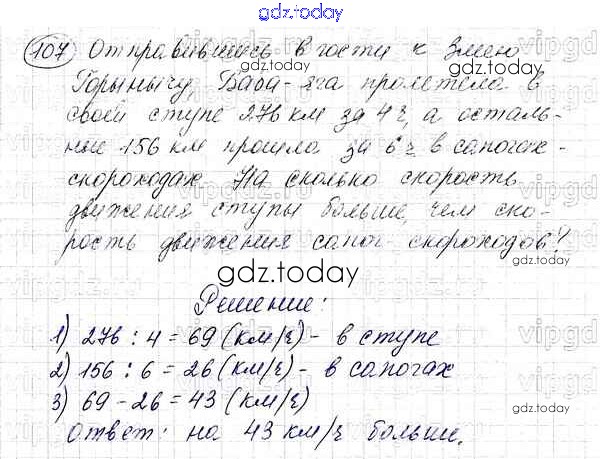 gdz.today
107 Отправившись в гости к Змею
Горынычу, Баба-яга пролетела в
своей ступе 276 км за 4 ч, а осталь-
ные 156 км прошла за 6 ч в сапогах-
скороходах. На сколько скорость
движения ступы больше, чем ско-
рость движения сапог-скороходов?
gdz.today
Решение:
1) 276 : 4 = 69 (км/ч) - в ступе
2) 156 : 6 = 26 (км/ч) - в сапогах
3) 69 - 26 = 43 (км/ч)
Ответ: на 43 км/ч больше.
gdz.today